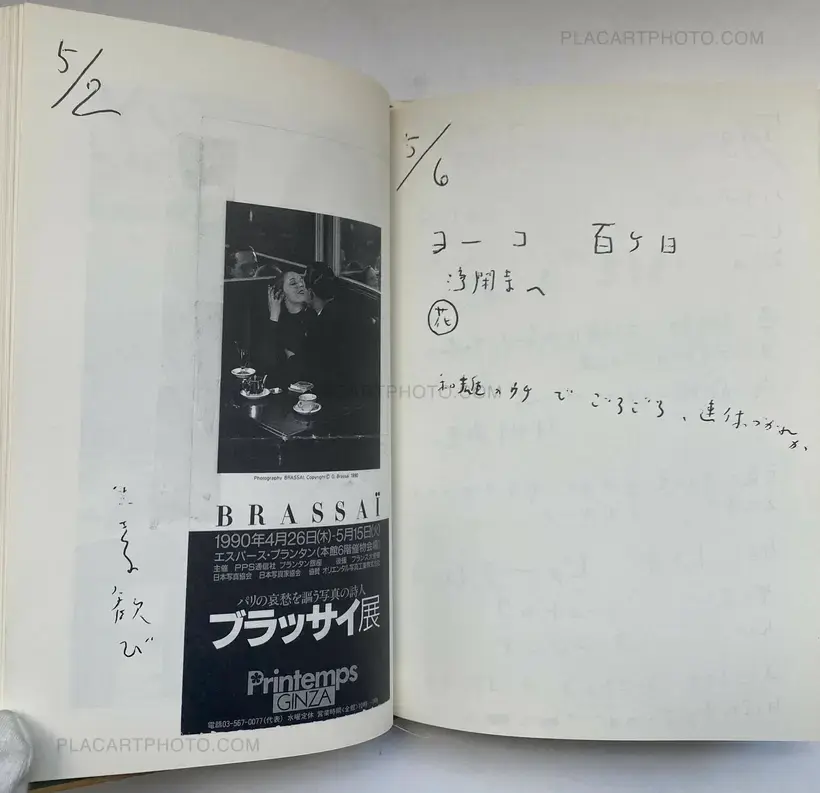 PLACARTPHOTO.COM
5/2
Photography BRASSAI, Copyright © G. Brassaï 1990
BRASSAÏ
1990年4月26日(木)-5月15日(火)
エスパース・プランタン(本館6階催物会場)
主催 PPS通信社 プランタン銀座 後援 フランス大使館
日本写真協会 日本写真家協会 協賛 オリエンタル写真工業株式会社
パリの哀愁を謳う写真の詩人
ブラッサイ展
Printemps
GINZA
電話03-567-0077(代表) 水曜定休 営業時間
生きる歓び
5/6
ヨーコ 百ケ日
浄閑寺へ
花
PLACARTPHOTO.COM
でごろごろ、連休づかれか、
PLACARTPHOTO.COM